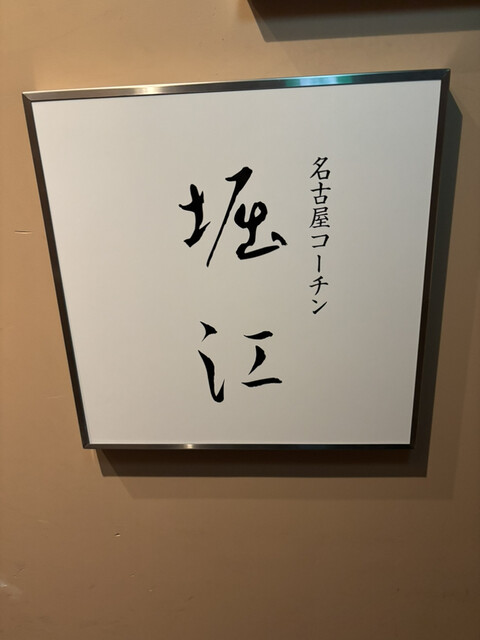 名古屋コーチン
堀江